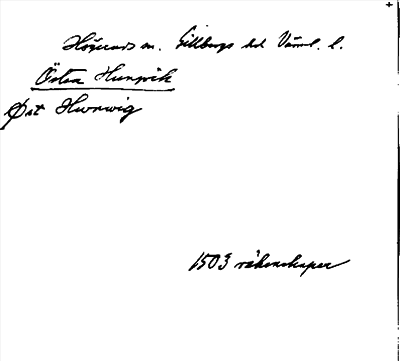 Högerud sn. Gillbergs hd Värml. l.
Östra Hungvik
Øst Hwnwig
1503 räkenskaper